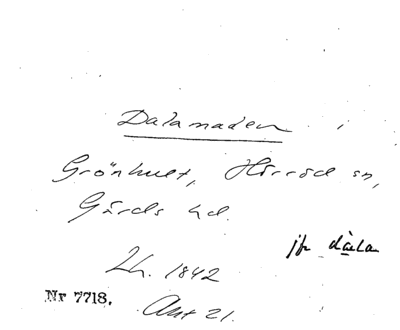 Dalamaden i
Grönhult, Hörröd sn,
Gärds hd.
jfr dala
Lh. 1842
Nr 7718.
Akt 21.